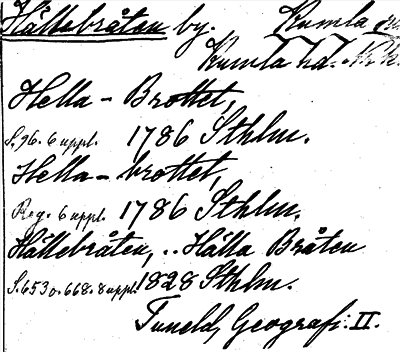 Hällebråten by. Kumla
Kumla hd.
Hella - Brottet,
S. 96. 6 uppl. 1786 Sthlm.
Hella - brottet,
Reg. 6 uppl. 1786 Sthlm.
Hällebråten, .. Hälla Bråten
S. 653 o. 668. 8 uppl. 1828 Sthlm.
Tuneld, Geografi. II.